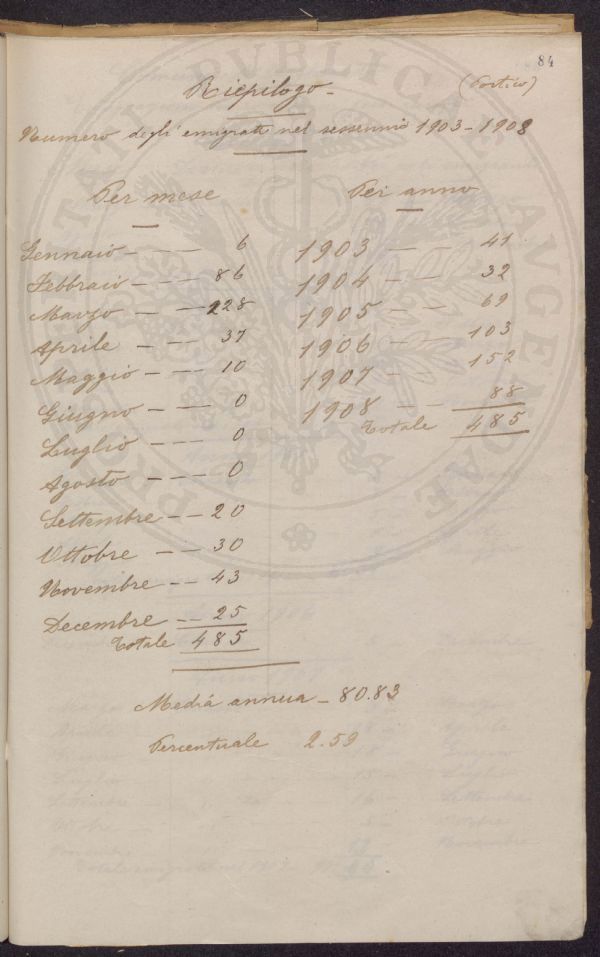 84
Riepilogo - (Portico)
Numero degli emigrati nel sessennio 1903-1908
Per mese
Gennaio - - - 6
Febbraio - - - 86
Marzo - - 228
Aprile - - 37
Maggio - - 10
Giugno - - - 0
Luglio - - - 0
Agosto - - - 0
Settembre - - 20
Ottobre - - 30
Novembre - - 43
Decembre - - 25
Totale 485
Per anno
1903 - - 41
1904 - - 32
1905 - - 69
1906 - - 103
1907 - - 152
1908 - - 88
Totale 485
Media annua - 80.83
Percentuale 2.59
PVBLICAE AVGENDAE